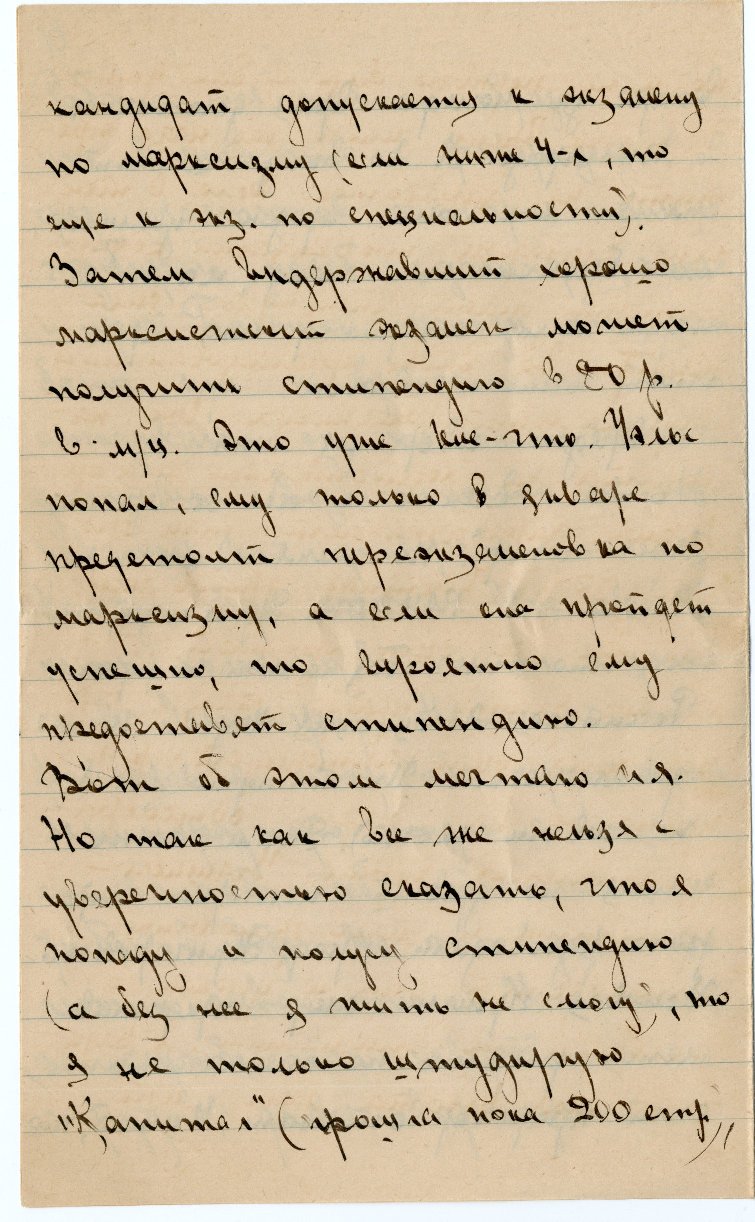 кандидат допускается к экзамену
по марксизму (если ниже 4-х, то
еще к экз. по специальности).
Затем выдержавший хорошо
марксистский экзамен может
получить стипендию в 80 р.
в м/ц. Это уже кое-что.
попал, ему только в январе
предстоит переэкзаменовка по
марксизму, а если она пройдет
успешно, то вероятно ему
предоставят стипендию.
Вот об этом мечтаю и я.
Но так как все же нельзя с
уверенностью сказать, что я
попаду и получу стипендию
(а без нее я жить не смогу), то
я не только штудирую
"Капитал" (прошла пока 200 стр.),